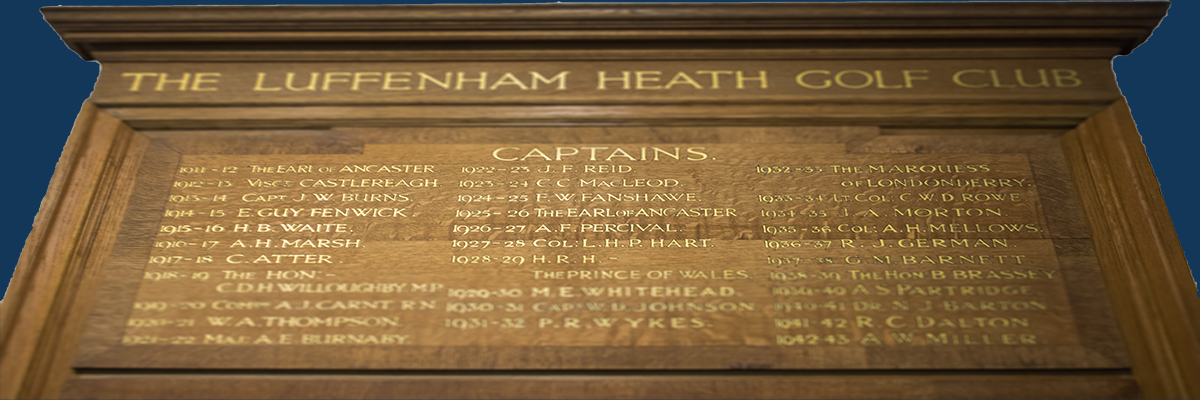 THE LUFFENHAM HEATH GOLF CLUB
CAPTAINS.
1911-12 THE EARL OF ANCASTER
1912-13 VISCT CASTLEREAGH
1913-14 CAPT J.W. BURNS.
1914-15 E. GUY FENWICK.
1915-16 H.B. WAITE.
1916-17 A.H. MARSH.
1917-18 C. ATTER.
1918-19 THE HON:-
C.D.H WILLOUGHBY M.P.
1919-20 A.J. CARNT R.N
1920-21 W.A. THOMPSON.
1921-22 MAJ: A.E. BURNABY.
1922-23 J.F. REID
1923-24 C.C. MACLEOD.
1924-25 E.W. FANSHAWE.
1925-26 THE EARL OF ANCASTER
1926-27 A.F. PERCIVAL.
1927-28 COL: L.H.P. HART.
1928-29 H.R.H.-
THE PRINCE OF WALES.
1929-30 M.E. WHITEHEAD.
1930-31 CAPT W.D. JOHNSON
1931-32 P.R. WYKES.
1932-33 THE MARQUESS
OF LONDONDERRY.
1933-34 LT COL. C.W.D. ROWE
1934-35 J.A. MORTON
1935-36 COL: A.H. MELLOWS.
1936-37 R.J. GERMAN.
1937-38 G.M BARNETT
1938-39 THE HON B BRASSEY
1939-40 A S PARTRIDGE
1940-41 DR N J BARTON
1941-42 R C DALTON
1942-43 A W MILLER